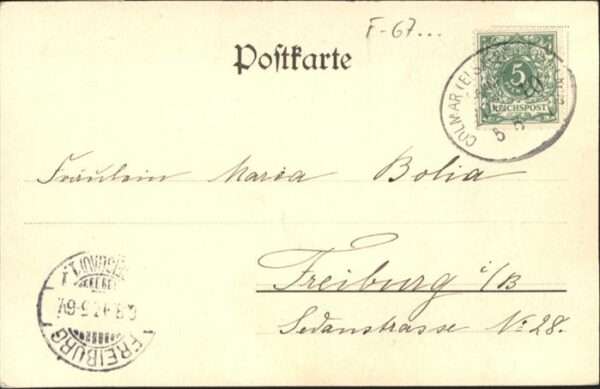 F-67...
Postkarte
5
REICHSPOST
COLMAR (ELS
5 5
Fräulein Maria Bolia
Freiburg i/B
Sedanstrasse No 28.
FREIBURG